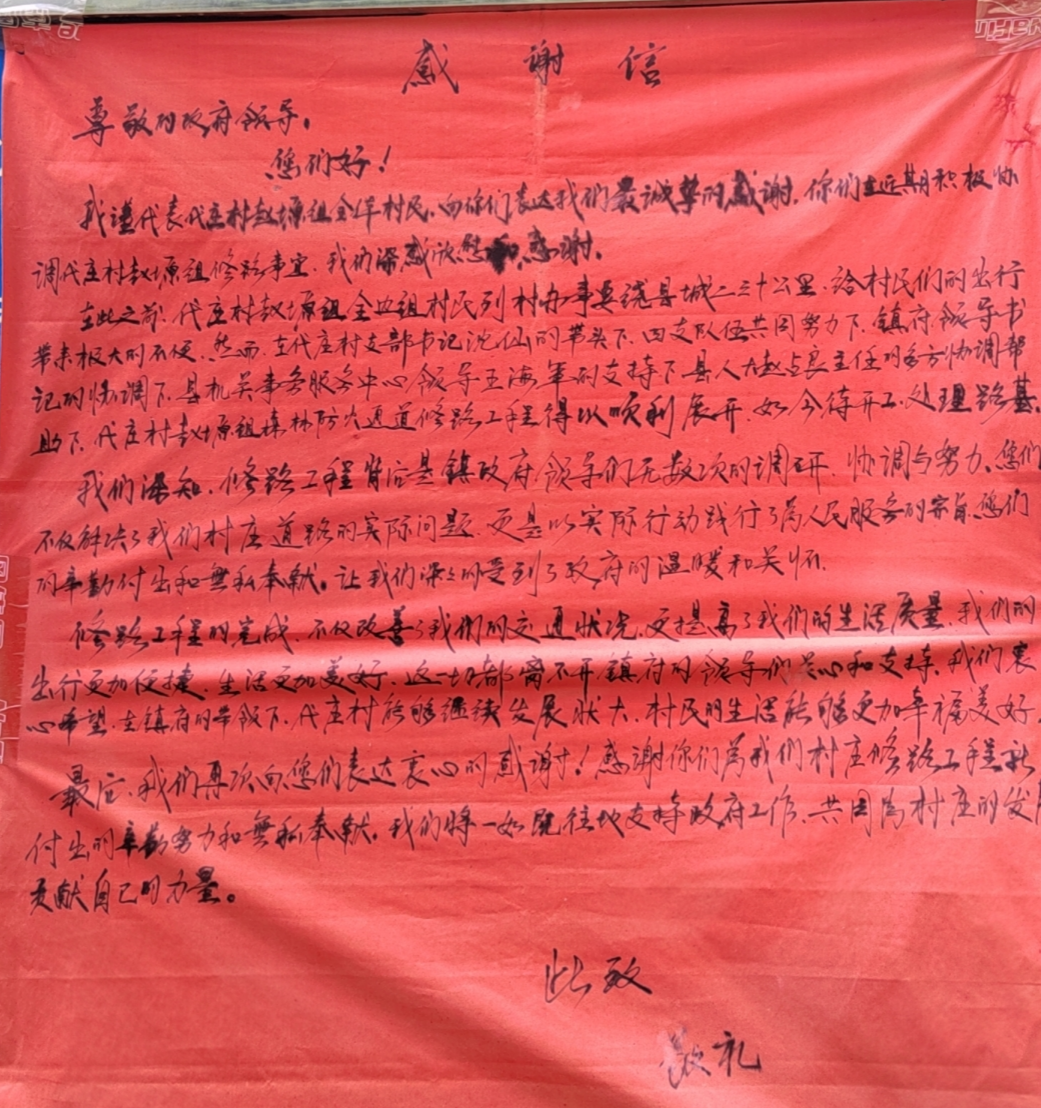 感谢信
尊敬的政府领导。
您们好！
我谨代表代庄村赵塬组全体村民，向你们表达我们最诚挚的感谢。你们在近期积极协
调代庄村赵塬组修路事宜，我们深感欣慰和感谢。
在此之前，代庄村赵塬组全组村民到村办事要绕县城二三十公里，给村民们的出行
带来极大的不便。然而，在代庄村支部书记沈仙的带头下，四支队伍共同努力下，镇府领导书
记的协调下，县机关事务服务中心领导王海军的支持下县人大赵占良主任的多方协调帮
助下，代庄村赵塬组森林防火通道修路工程得以顺利展开，如今待开工，处理路基。
我们深知，修路工程背后是镇政府领导们无数次的调研、协调与努力、您们
不仅解决了我们村庄道路的实际问题，更是以实际行动践行了为人民服务的宗旨，您们
的辛勤付出和无私奉献。让我们深深的受到了政府的温暖和关怀。
修路工程的完成，不仅改善了我们的交通状况，更提高了我们的生活质量，我们的
出行更加便捷，生活更加美好，这一切都离不开镇府的领导们关心和支持，我们衷
心希望，在镇府的带领下，代庄村能够继续发展状大，村民的生活能够更加幸福美好。
最后，我们再次向您们表达衷心的感谢！感谢你们为我们村庄修路工程所
付出的辛勤努力和无私奉献，我们将一如既往地支持政府工作，共同为村庄的发
贡献自己的力量。
此致
敬礼